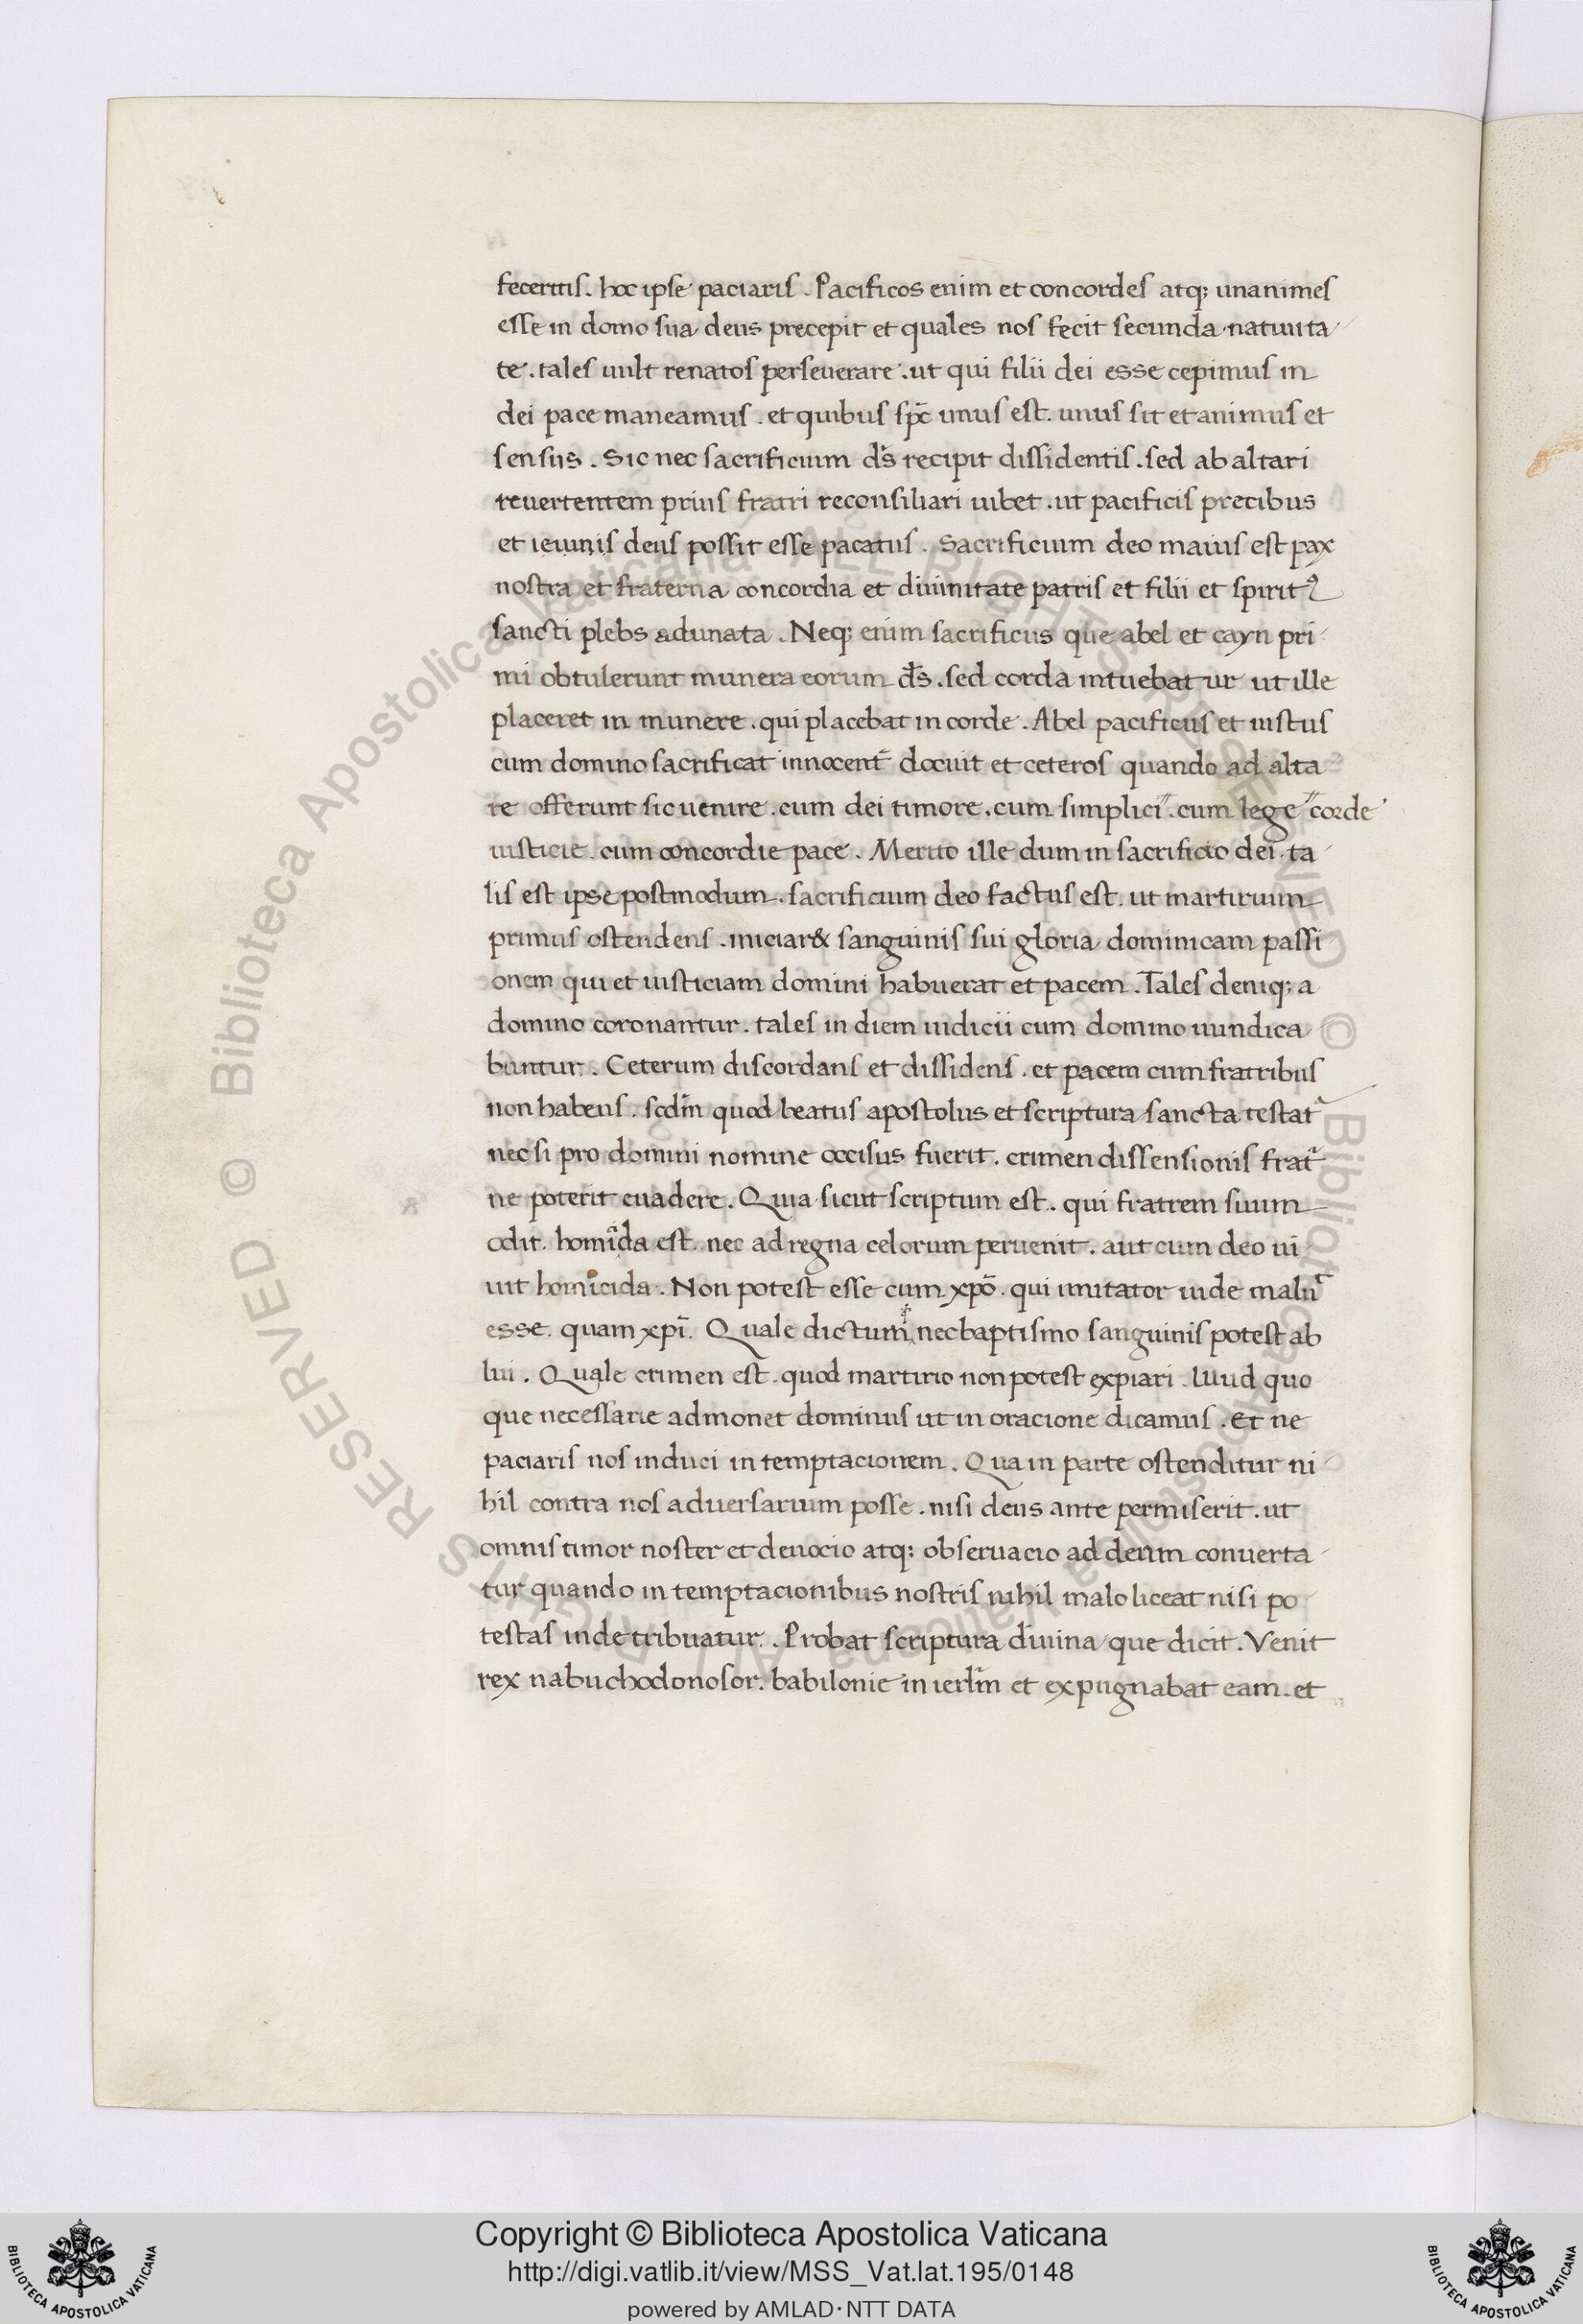 feceritis. hoc ipse paciaris. Pacificos enim et concordes atq; unanimes
esse in domo sua deus precepit et quales nos fecit secunda natiuita
te. tales uult renatos perseuerare. ut qui filii dei esse cepimus in
dei pace maneamus. et quibus sp̄c unus est. unus sit et animus et
sensus. Sic nec sacrificium ds̄ recipit dissidentis. sed ab altari
reuertentem prius fratri reconsiliari iubet. ut pacificis precibus
et ieiunis deus possit esse pacatus. Sacrificium deo maius est pax
nostra et fraterna concordia et diuinitate patris et filii et spiritꝰ
sancti plebs adunata. Neq; enim sacrificiis que abel et cayn pri
mi obtulerunt munera eorum ds̄. sed corda intuebatur ut ille
placeret in munere. qui placebat in corde. Abel pacificus et iustus
cum domino sacrificat innocent̄ docuit et ceteros quando ad alta
re offerunt sic uenire. cum dei timore. cum simplici〃. cum lege 〃corde
iusticie. cum concordie pace. Merito ille dum in sacrificio dei ta
lis est ipse postmodum. sacrificium deo factus est. ut martirium
primus ostendens. iniciar& sanguinis sui gloria dominicam passi
onem qui et iusticiam domini habuerat et pacem. Tales deniq; a
domino coronantur. tales in diem iudicii cum domino uundica
buntur. Ceterum discordans et dissidens. et pacem cum fratribus
non habens. scdm̄ quod beatus apostolus et scriptura sancta testat̄
nec si pro domini nomine occisus fuerit. crimen dissensionis frat̄
ne poterit euadere. Quia sicut scriptum est. qui fratrem suum
odit. homīda est. nec ad regna celorum peruenit. aut cum deo ui
uit homicida. Non potest esse cum xp̄o. qui imitator iude maluͭ
esse. quam xp̄i. Quale dictum nec baptismo sanguinis potest ab
lui. Quale crimen est. quod martirio non potest expiari. Illud quo
que necessarie admonet dominus ut in oracione dicamus. Et ne
paciaris nos induci in temptacionem. Qua in parte ostenditur ni
hil contra nos aduersarium posse. nisi deus ante permiserit. ut
omnis timor noster et deuocio atq; obseruacio ad deum conuerta
tur quando in temptacionibus nostris nihil malo liceat nisi po
testas inde tribuatur. Probat scriptura diuina que dicit. Venit
rex nabuchodonosor. babilonie in ierl̄m et expugnabat eam. et
© Biblioteca Apostolica Vaticana ALL RIGHTS RESERVED © Biblioteca Apostolica Vaticana ALL RIGHTS RESERVED
Copyright © Biblioteca Apostolica Vaticana
http://digi.vatlib.it/view/MSS_Vat.lat.195/0148
powered by AMLAD·NTT DATA
BIBLIOTECA APOSTOLICA VATICANA
BIBLIOTECA APOSTOLICA VATICANA